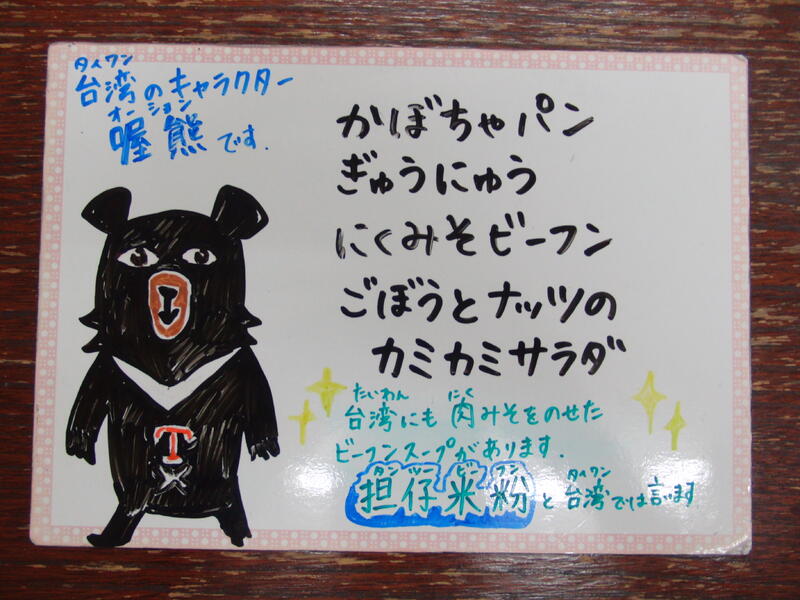 タイワン
台湾のキャラクター
オーション
喔熊です.
かぼちゃパン
ぎゅうにゅう
にくみそビーフン
ごぼうとナッツの
カミカミサラダ
たいわん にく
台湾にも肉みそをのせた
ビーフンスープがあります.
タンツービーフン タイワン い
担仔米粉と台湾では言います
T